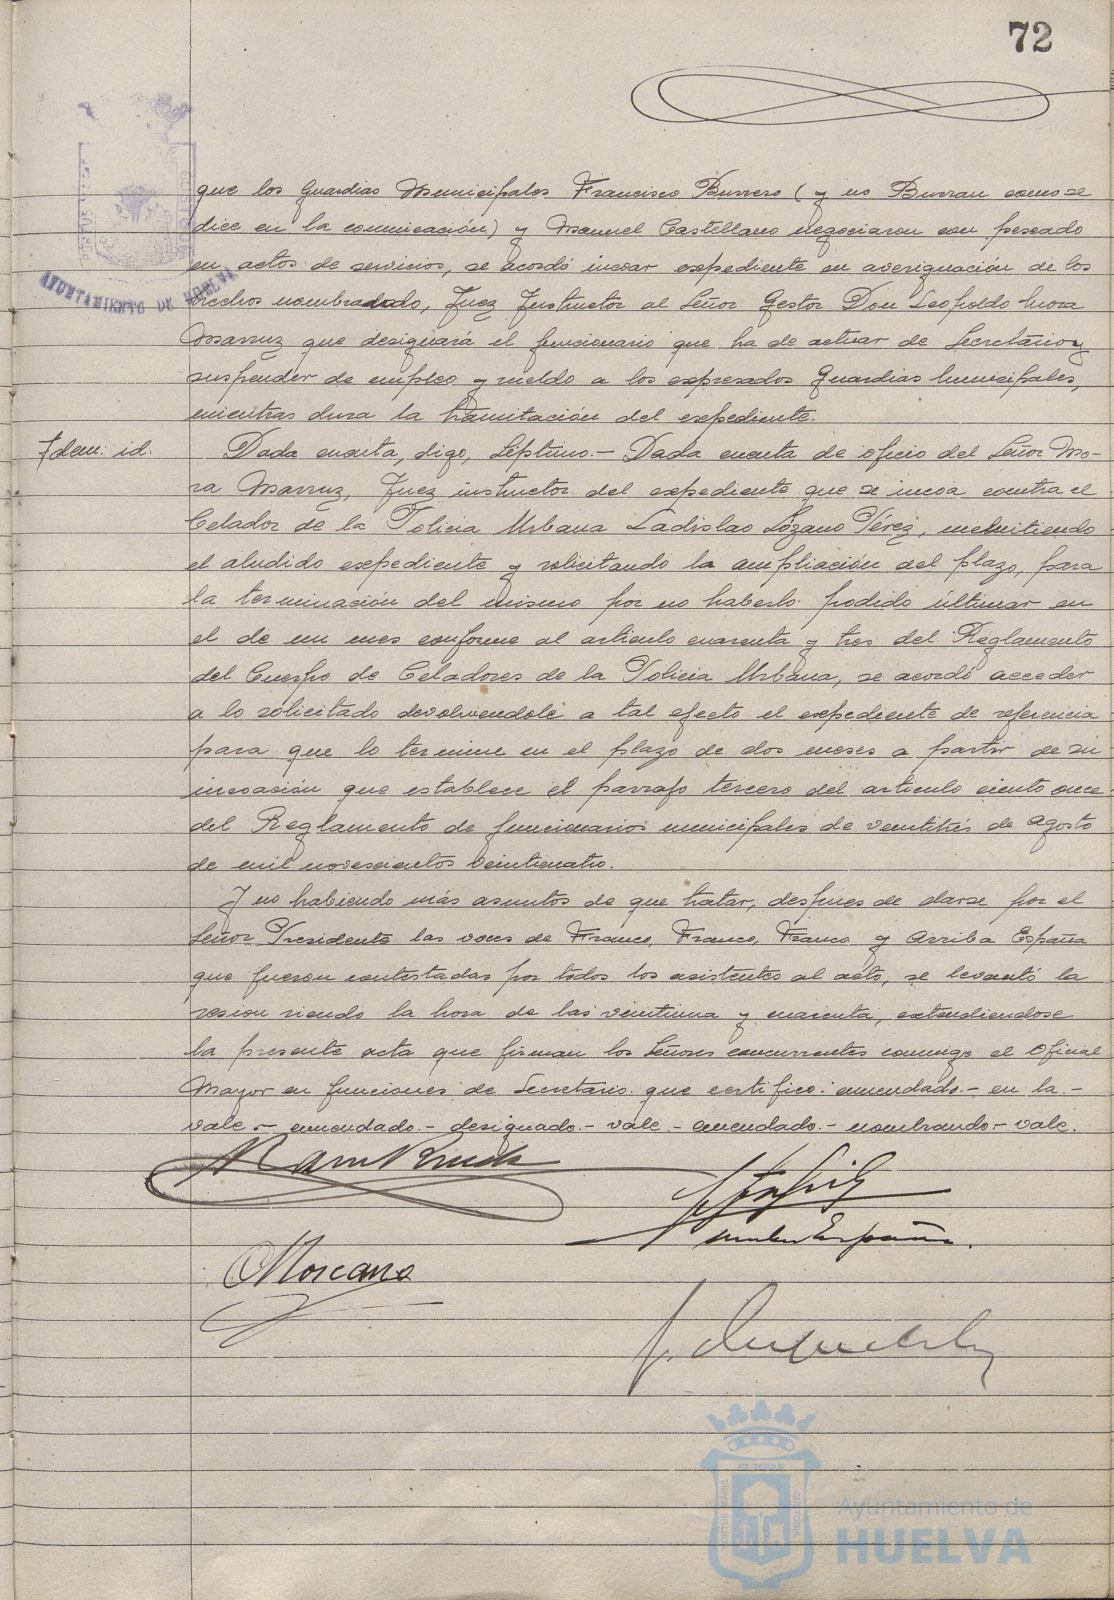 72
que los Guardias Municipales Francisco Burrero (y no Burran como se
dice en la comunicación) y Manuel Castellano negociaron con pescado
en actos de servicios, se acordó incoar expediente en averiguación de los
hechos nombrando, Juez Instructor al Señor Gestor Don Leopoldo Mora
Marruz que designará el funcionario que ha de actuar de Secretario y
suspender de empleo y sueldo a los expresados Guardias Municipales,
mientras dura la tramitación del expediente.
Idem: id.
Dada cuenta, digo, Séptimo.- Dada cuenta de oficio del Señor Mo-
ra Marruz, Juez instructor del expediente que se incoa contra el
Celador de la Policia Urbana Ladislao Lozano Pérez, remitiendo
el aludido expediente y solicitando la ampliación del plazo, para
la terminación del mismo por no haberlo podido últimar en
el de un mes conforme al articulo cuarenta y tres del Reglamento
del Cuerpo de Celadores de la Policia Urbana, se acordó acceder
a lo solicitado devolviendole a tal efecto el expediente de referencia
para que lo termine en el plazo de dos meses a partir de su
incoación que establece el parrafo tercero del articulo ciento once
del Reglamento de funcionarios municipales de veintitrés de agosto
de mil novescientos veinticuatro.
Y no habiendo más asuntos de que tratar, despues de darse por el
Señor Presidente las voces de Franco, Franco, Franco y Arriba España
que fueron contestadas por todos los asistentes al acto, se levantó la
sesion siendo la hora de las veintiuna y cuarenta, extendiendose
la presente acta que firman los Señores concurrentes conmigo el Oficial
Mayor en funciones de Secretario que certifico: enmendado.- en la.-
vale.- enmendado.- designado.- vale.- enmendado.- nombrando.- vale.
AYUNTAMIENTO DE HUELVA
Ayuntamiento de
HUELVA